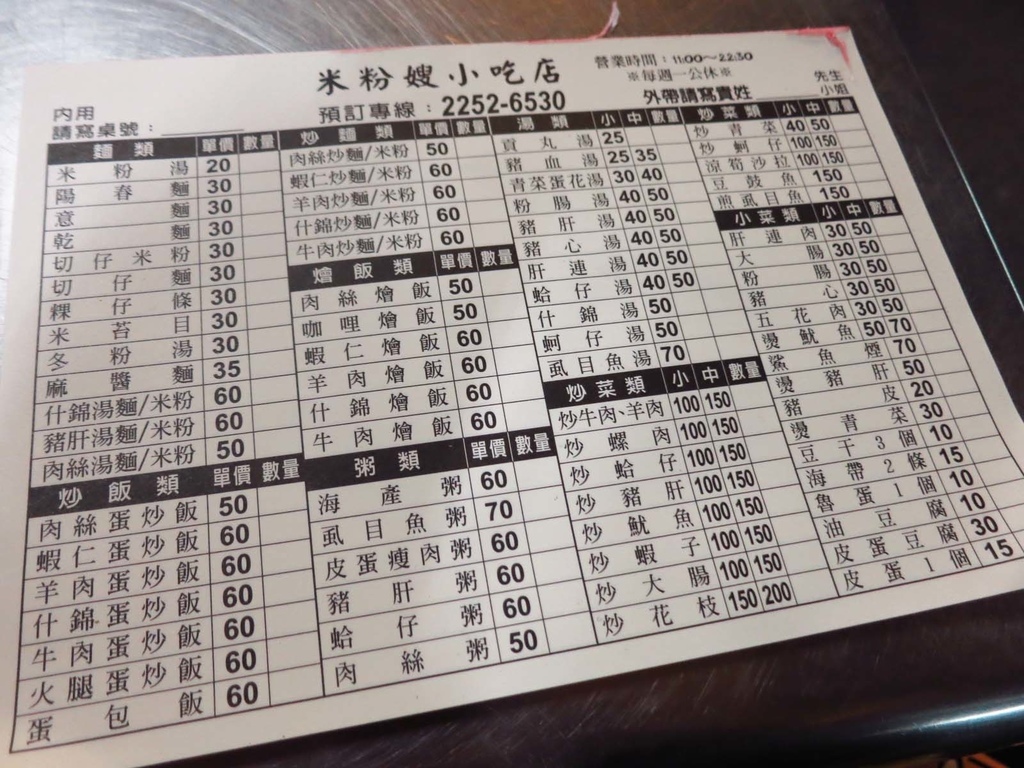 米粉嫂小吃店
營業時間：11:00～22:30
※每週一公休※
內用
請寫桌號：
預訂專線：2252-6530
外帶請寫貴姓 先生 小姐
麵類 單價 數量
米粉湯 20
陽春麵 30
意麵 30
乾麵 30
切仔米粉 30
切仔麵 30
粿仔條 30
米苔目 30
冬粉湯 30
麻醬麵 35
什錦湯麵/米粉 60
豬肝湯麵/米粉 60
肉絲湯麵/米粉 50
炒飯類 單價 數量
肉絲蛋炒飯 50
蝦仁蛋炒飯 60
羊肉蛋炒飯 60
什錦蛋炒飯 60
牛肉蛋炒飯 60
火腿蛋炒飯 60
蛋包飯 60
炒麵類 單價 數量
肉絲炒麵/米粉 50
蝦仁炒麵/米粉 60
羊肉炒麵/米粉 60
什錦炒麵/米粉 60
牛肉炒麵/米粉 60
燴飯類 單價 數量
肉絲燴飯 50
咖哩燴飯 50
蝦仁燴飯 60
羊肉燴飯 60
什錦燴飯 60
牛肉燴飯 60
粥類 單價 數量
海產粥 60
虱目魚粥 70
皮蛋瘦肉粥 60
豬肝粥 60
蛤仔粥 60
肉絲粥 50
湯類 小 中 數量
貢丸湯 25
豬血湯 25 35
青菜蛋花湯 30 40
粉腸湯 40 50
豬肝湯 40 50
豬心湯 40 50
肝連湯 40 50
蛤仔湯 40 50
什錦湯 50
蚵仔湯 50
虱目魚湯 70
炒菜類 小 中 數量
炒牛肉、羊肉 100 150
炒螺肉 100 150
炒蛤仔 100 150
炒豬肝 100 150
炒魷魚 100 150
炒蝦子 100 150
炒大腸 100 150
炒花枝 150 200
炒菜類 小 中 數量
炒青菜 40 50
炒蚵仔 100 150
涼筍沙拉 100 150
豆鼓魚 150
煎虱目魚 150
小菜類 小 中 數量
肝連肉 30 50
大腸 30 50
粉腸 30 50
豬心 30 50
五花肉 30 50
燙魷魚 50 70
鯊魚煙 70
燙豬肝 50
豬皮 20
燙青菜 30
豆干3個 10
海帶2條 15
魯蛋1個 10
油豆腐 10
皮蛋豆腐 30
皮蛋1個 15